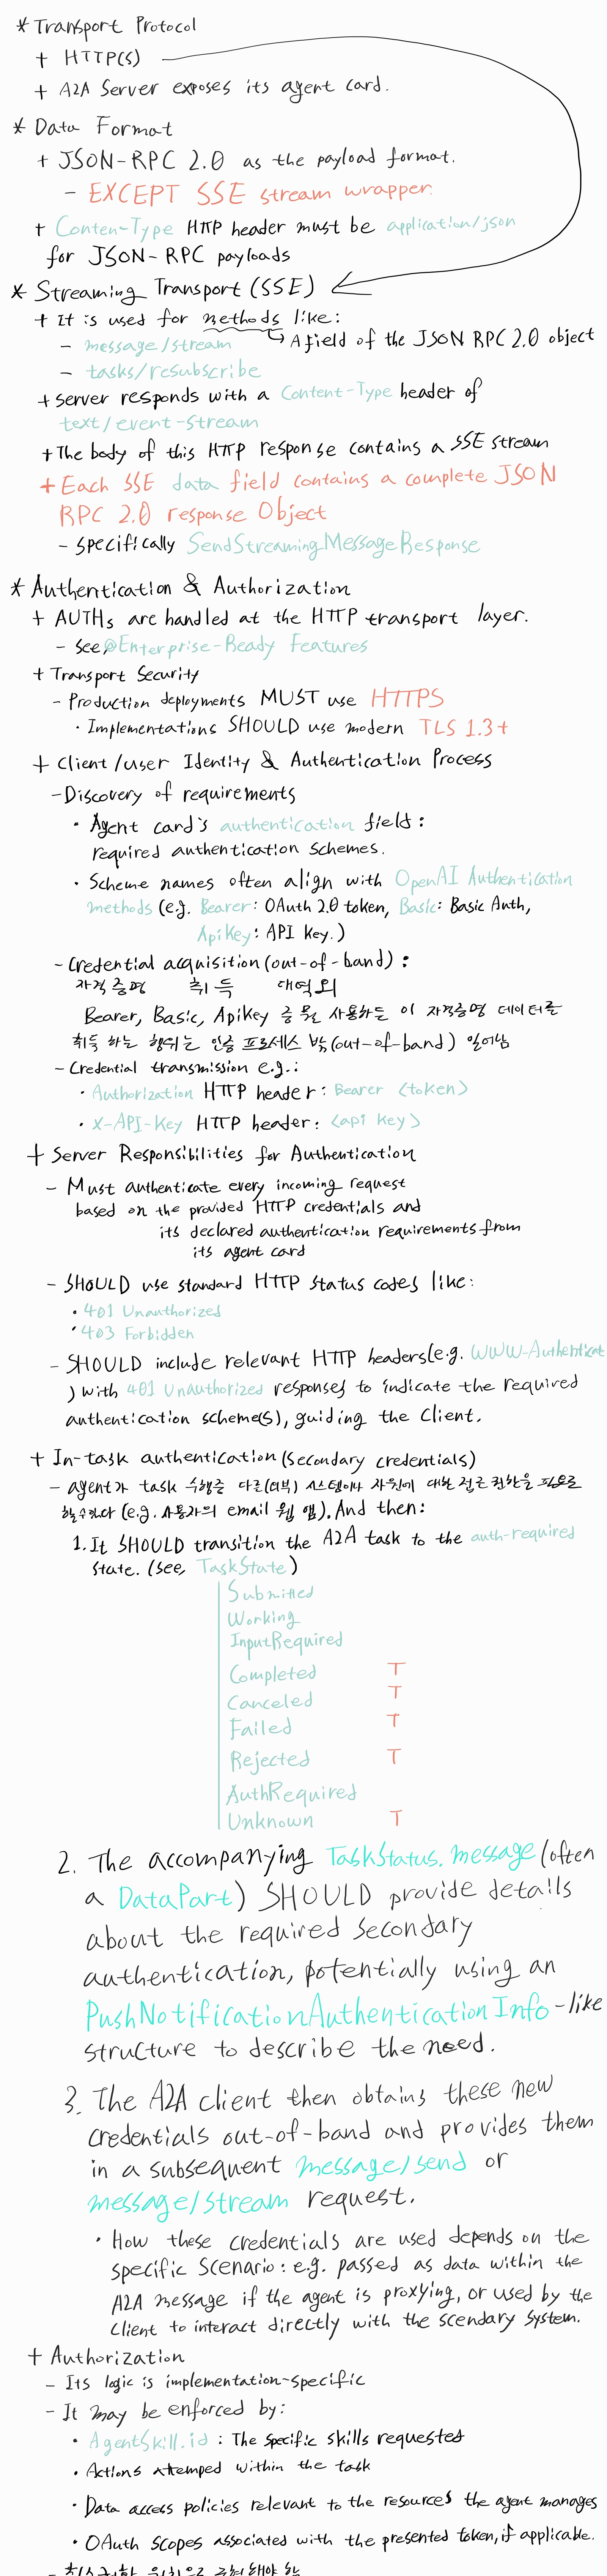 * Transport Protocol
+ HTTP(S)
+ A2A Server exposes its agent card.
* Data Format
+ JSON-RPC 2.0 as the payload format.
- EXCEPT SSE stream wrapper.
+ Conten-Type HTTP header must be application/json
for JSON-RPC payloads
* Streaming Transport (SSE)
+ It is used for methods like:
↳ A field of the JSON RPC 2.0 object
- message/stream
- tasks/resubscribe
+ server responds with a Content-Type header of
text/event-stream
+ The body of this HTTP response contains a SSE stream
+ Each SSE data field contains a complete JSON
RPC 2.0 response Object
- specifically SendStreamingMessageResponse
* Authentication & Authorization
+ AUTHs are handled at the HTTP transport layer.
- see, @Enterprise-Ready Features
+ Transport Security
- Production deployments MUST use HTTPS
· Implementations SHOULD use modern TLS 1.3+
+ Client/user Identity & Authentication Process
- Discovery of requirements
· Agent card's authentication field:
required authentication schemes.
· Scheme names often align with OpenAI Authentication
methods (e.g. Bearer: OAuth 2.0 token, Basic: Basic Auth,
ApiKey: API key.)
- Credential acquisition (out-of-band):
자격 증명 취득 대역 외
Bearer, Basic, ApiKey 중 뭘 사용하든 이 자격증명 데이터를
취득 하는 행위는 인증 프로세스 밖(out-of-band) 일어남
- Credential transmission e.g.:
· Authorization HTTP header: Bearer <token>
· X-API-Key HTTP header: <api key>
+ Server Responsibilities for Authentication
- Must authenticate every incoming request
based on the provided HTTP credentials and
its declared authentication requirements from
its agent card
- SHOULD use standard HTTP status codes like:
· 401 Unauthorized
· 403 Forbidden
- SHOULD include relevant HTTP headers(e.g. WWW-Authenticat
) with 401 Unauthorized responses to indicate the required
authentication scheme(s), guiding the Client.
+ In-task authentication (secondary credentials)
- agent가 task 수행중 다른(외부) 시스템이나 자원에 대한 접근 권한을 필요로
할수있다 (e.g. 사용자의 email 웹 앱). And then:
1. It SHOULD transition the A2A task to the auth-required
state. (see, TaskState)
Submitted
Working
InputRequired
Completed T
Canceled T
Failed T
Rejected T
AuthRequired
Unknown T
2. The accompanying TaskStatus.message (often
a DataPart) SHOULD provide details
about the required secondary
authentication, potentially using an
PushNotificationAuthenticationInfo-like
structure to describe the need.
3. The A2A client then obtains these new
credentials out-of-band and provides them
in a subsequent message/send or
message/stream request.
· How these credentials are used depends on the
specific scenario: e.g. passed as data within the
A2A message if the agent is proxying, or used by the
client to interact directly with the scendary system.
+ Authorization
- Its logic is implementation-specific
- It may be enforced by:
· AgentSkill.id : The specific skills requested
· Actions attemped within the task
· Data access policies relevant to the resources the agent manages
· OAuth scopes associated with the presented token, if applicable.